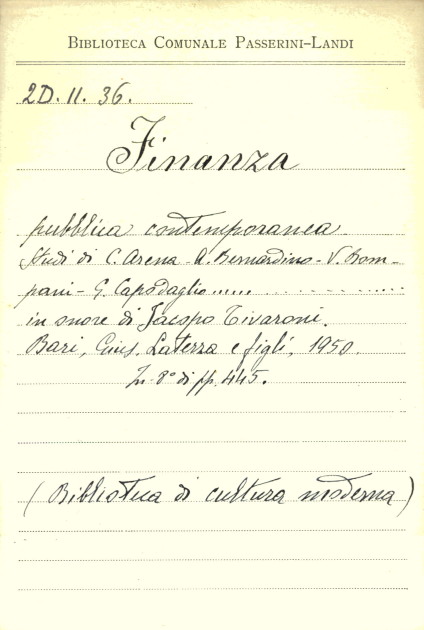 BIBLIOTECA COMUNALE PASSERINI-LANDI
2D. 11. 36.
Finanza
pubblica contemporanea
Studi di C. Arena - A. Bernardino - V. Bom-
pani - G. Capodaglio......
in onore di Jacopo Tivaroni.
Bari, Gius. Laterza e figli, 1950.
In-8° di pp. 445.
(Biblioteca di cultura moderna)